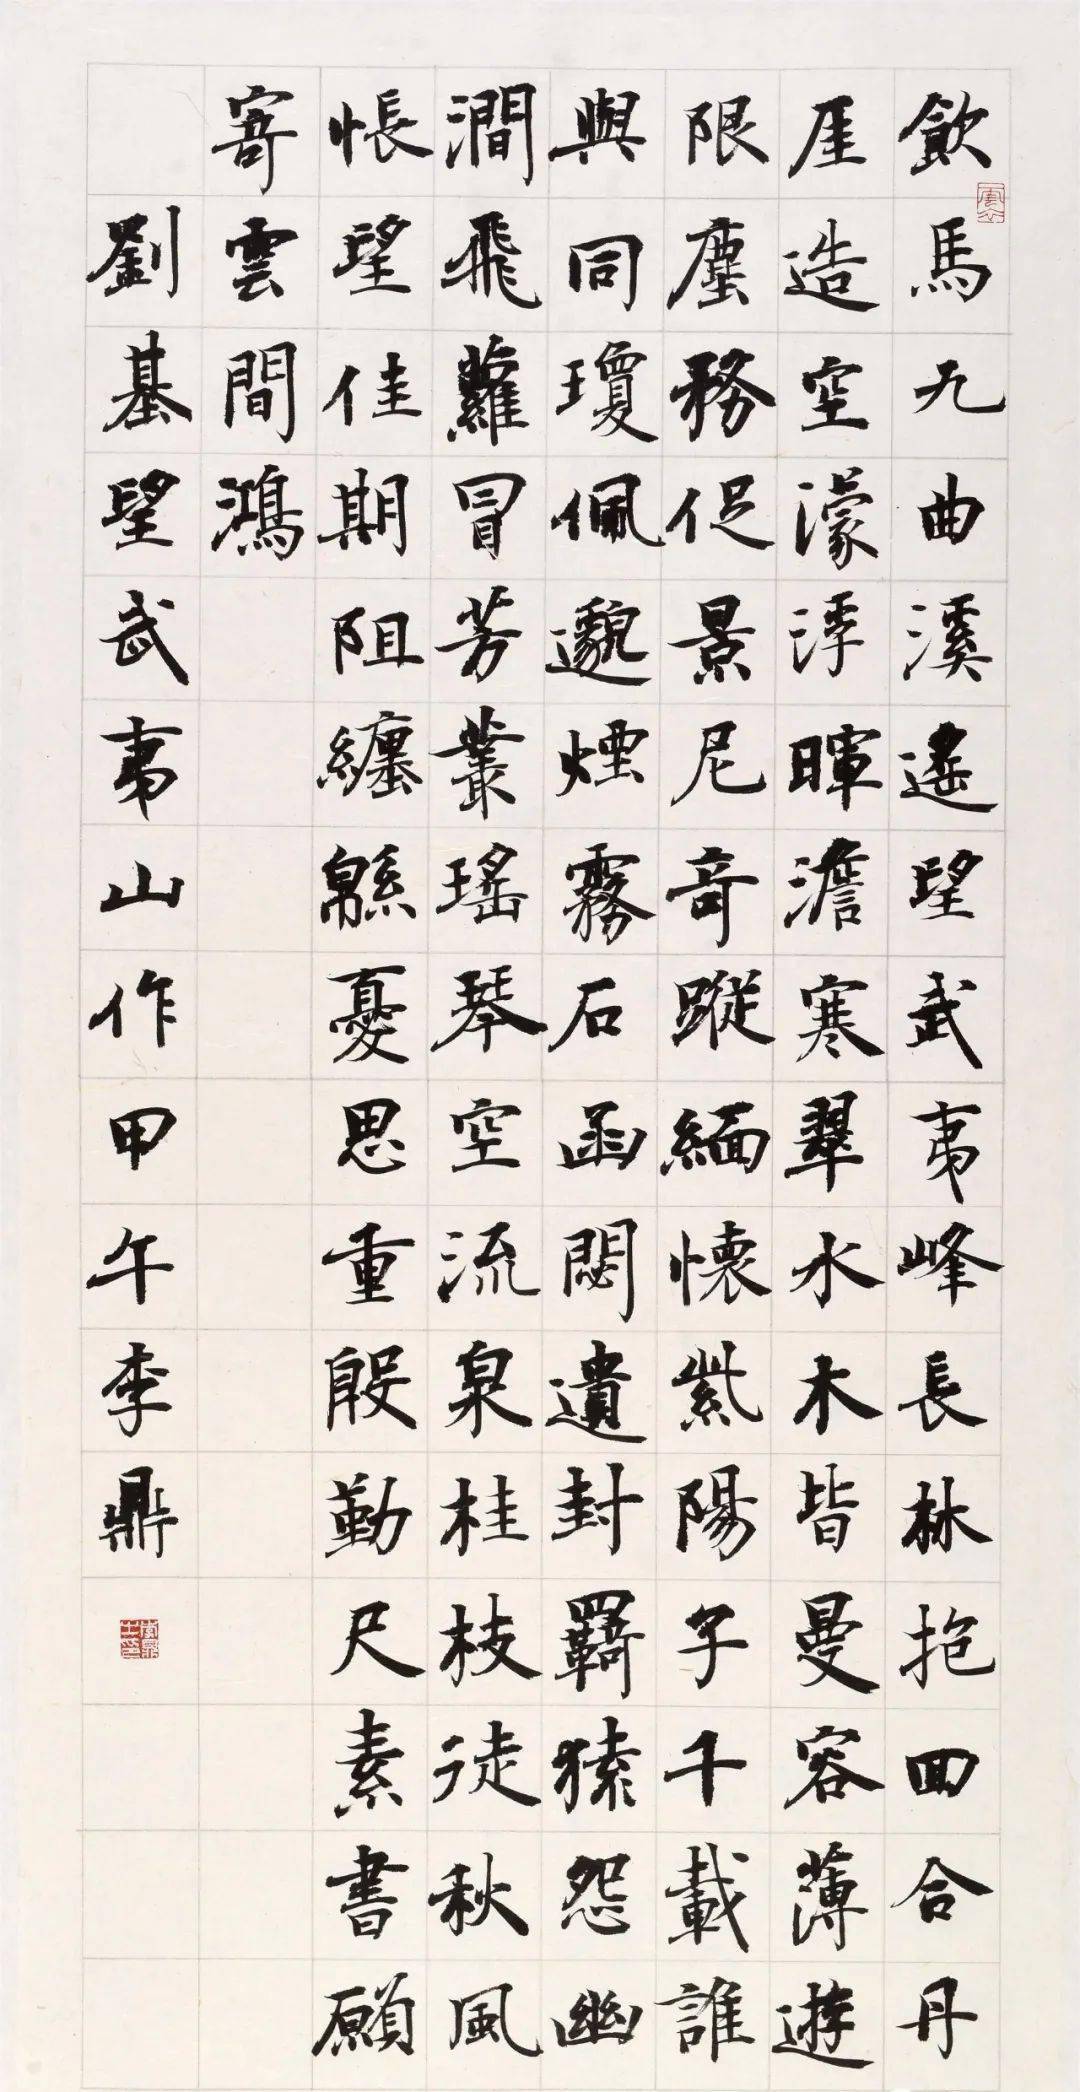 飲馬九曲溪遙望武夷峰長林抱回合丹
厓造空濛浮暉澹寒翠水木皆曼容薄遊
限塵務促景尼奇蹤緬懷紫陽子千載誰
與同瓊佩邈煙霧石函閟遺封羈猿怨幽
澗飛蘿冒芳叢瑤琴空流泉桂枝徒秋風
悵望佳期阻纏緜憂思重殷勤尺素書願
寄雲間鴻
劉基望武夷山作甲午李鼎